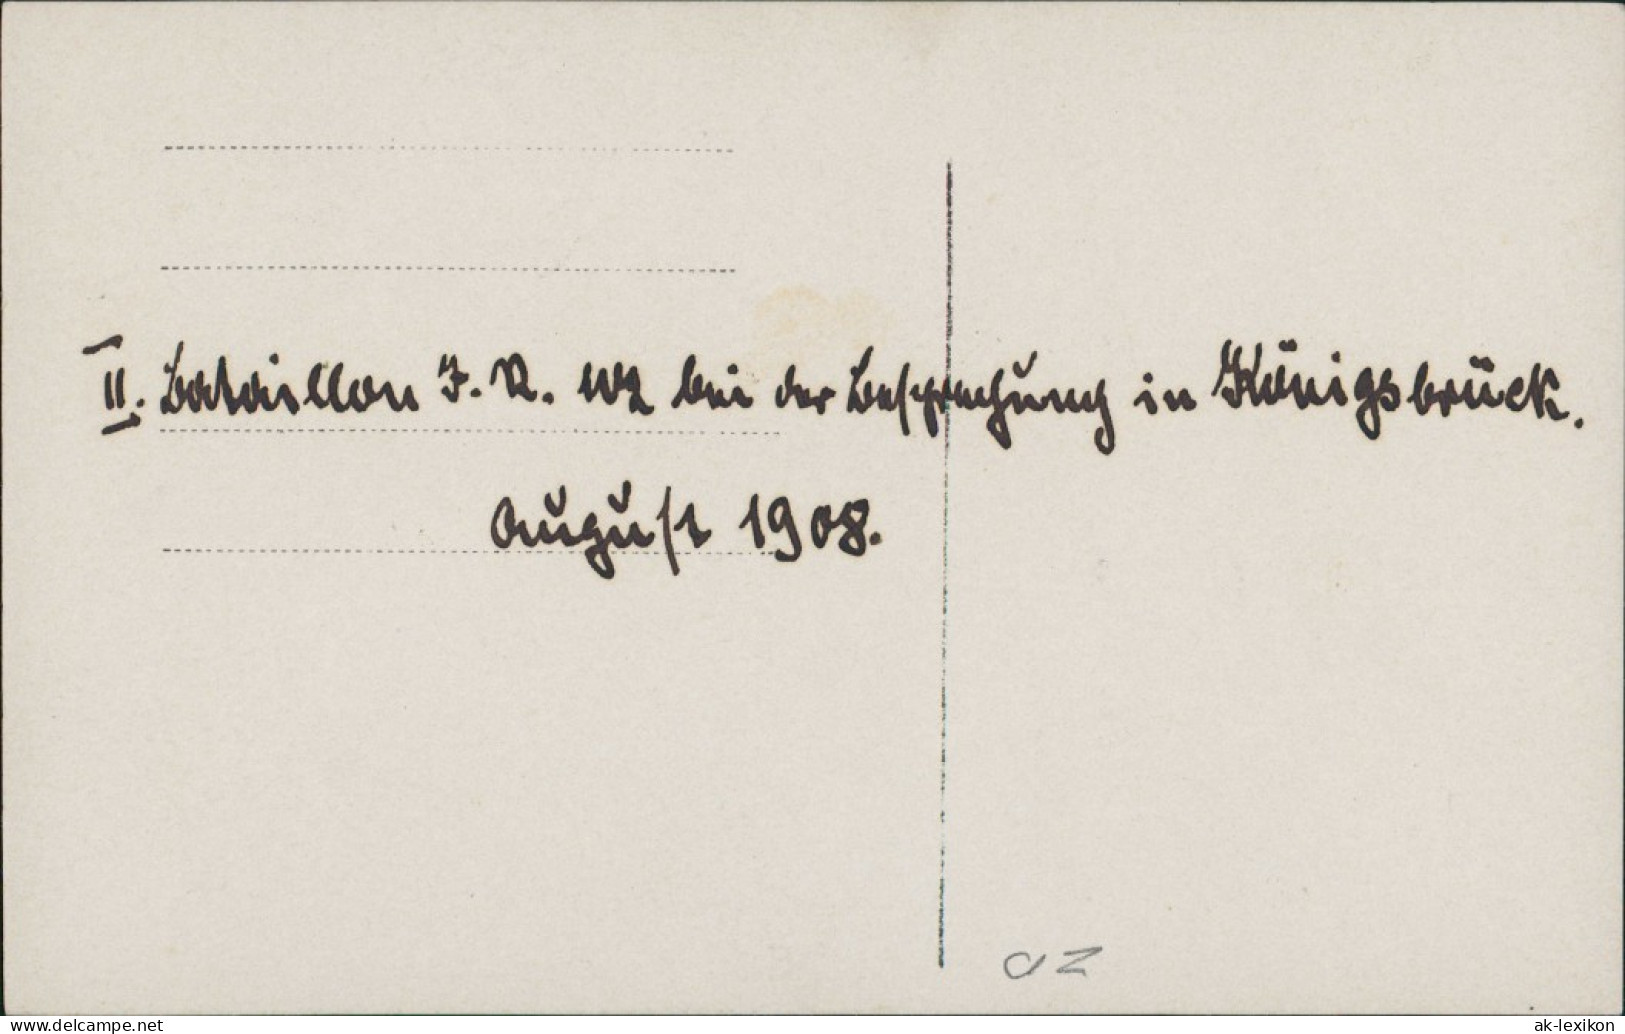 II. Bataillon I. R. 102 bei der Besprechung in Königsbrück.
August 1908.
www.delcampe.net
ak-lexikon